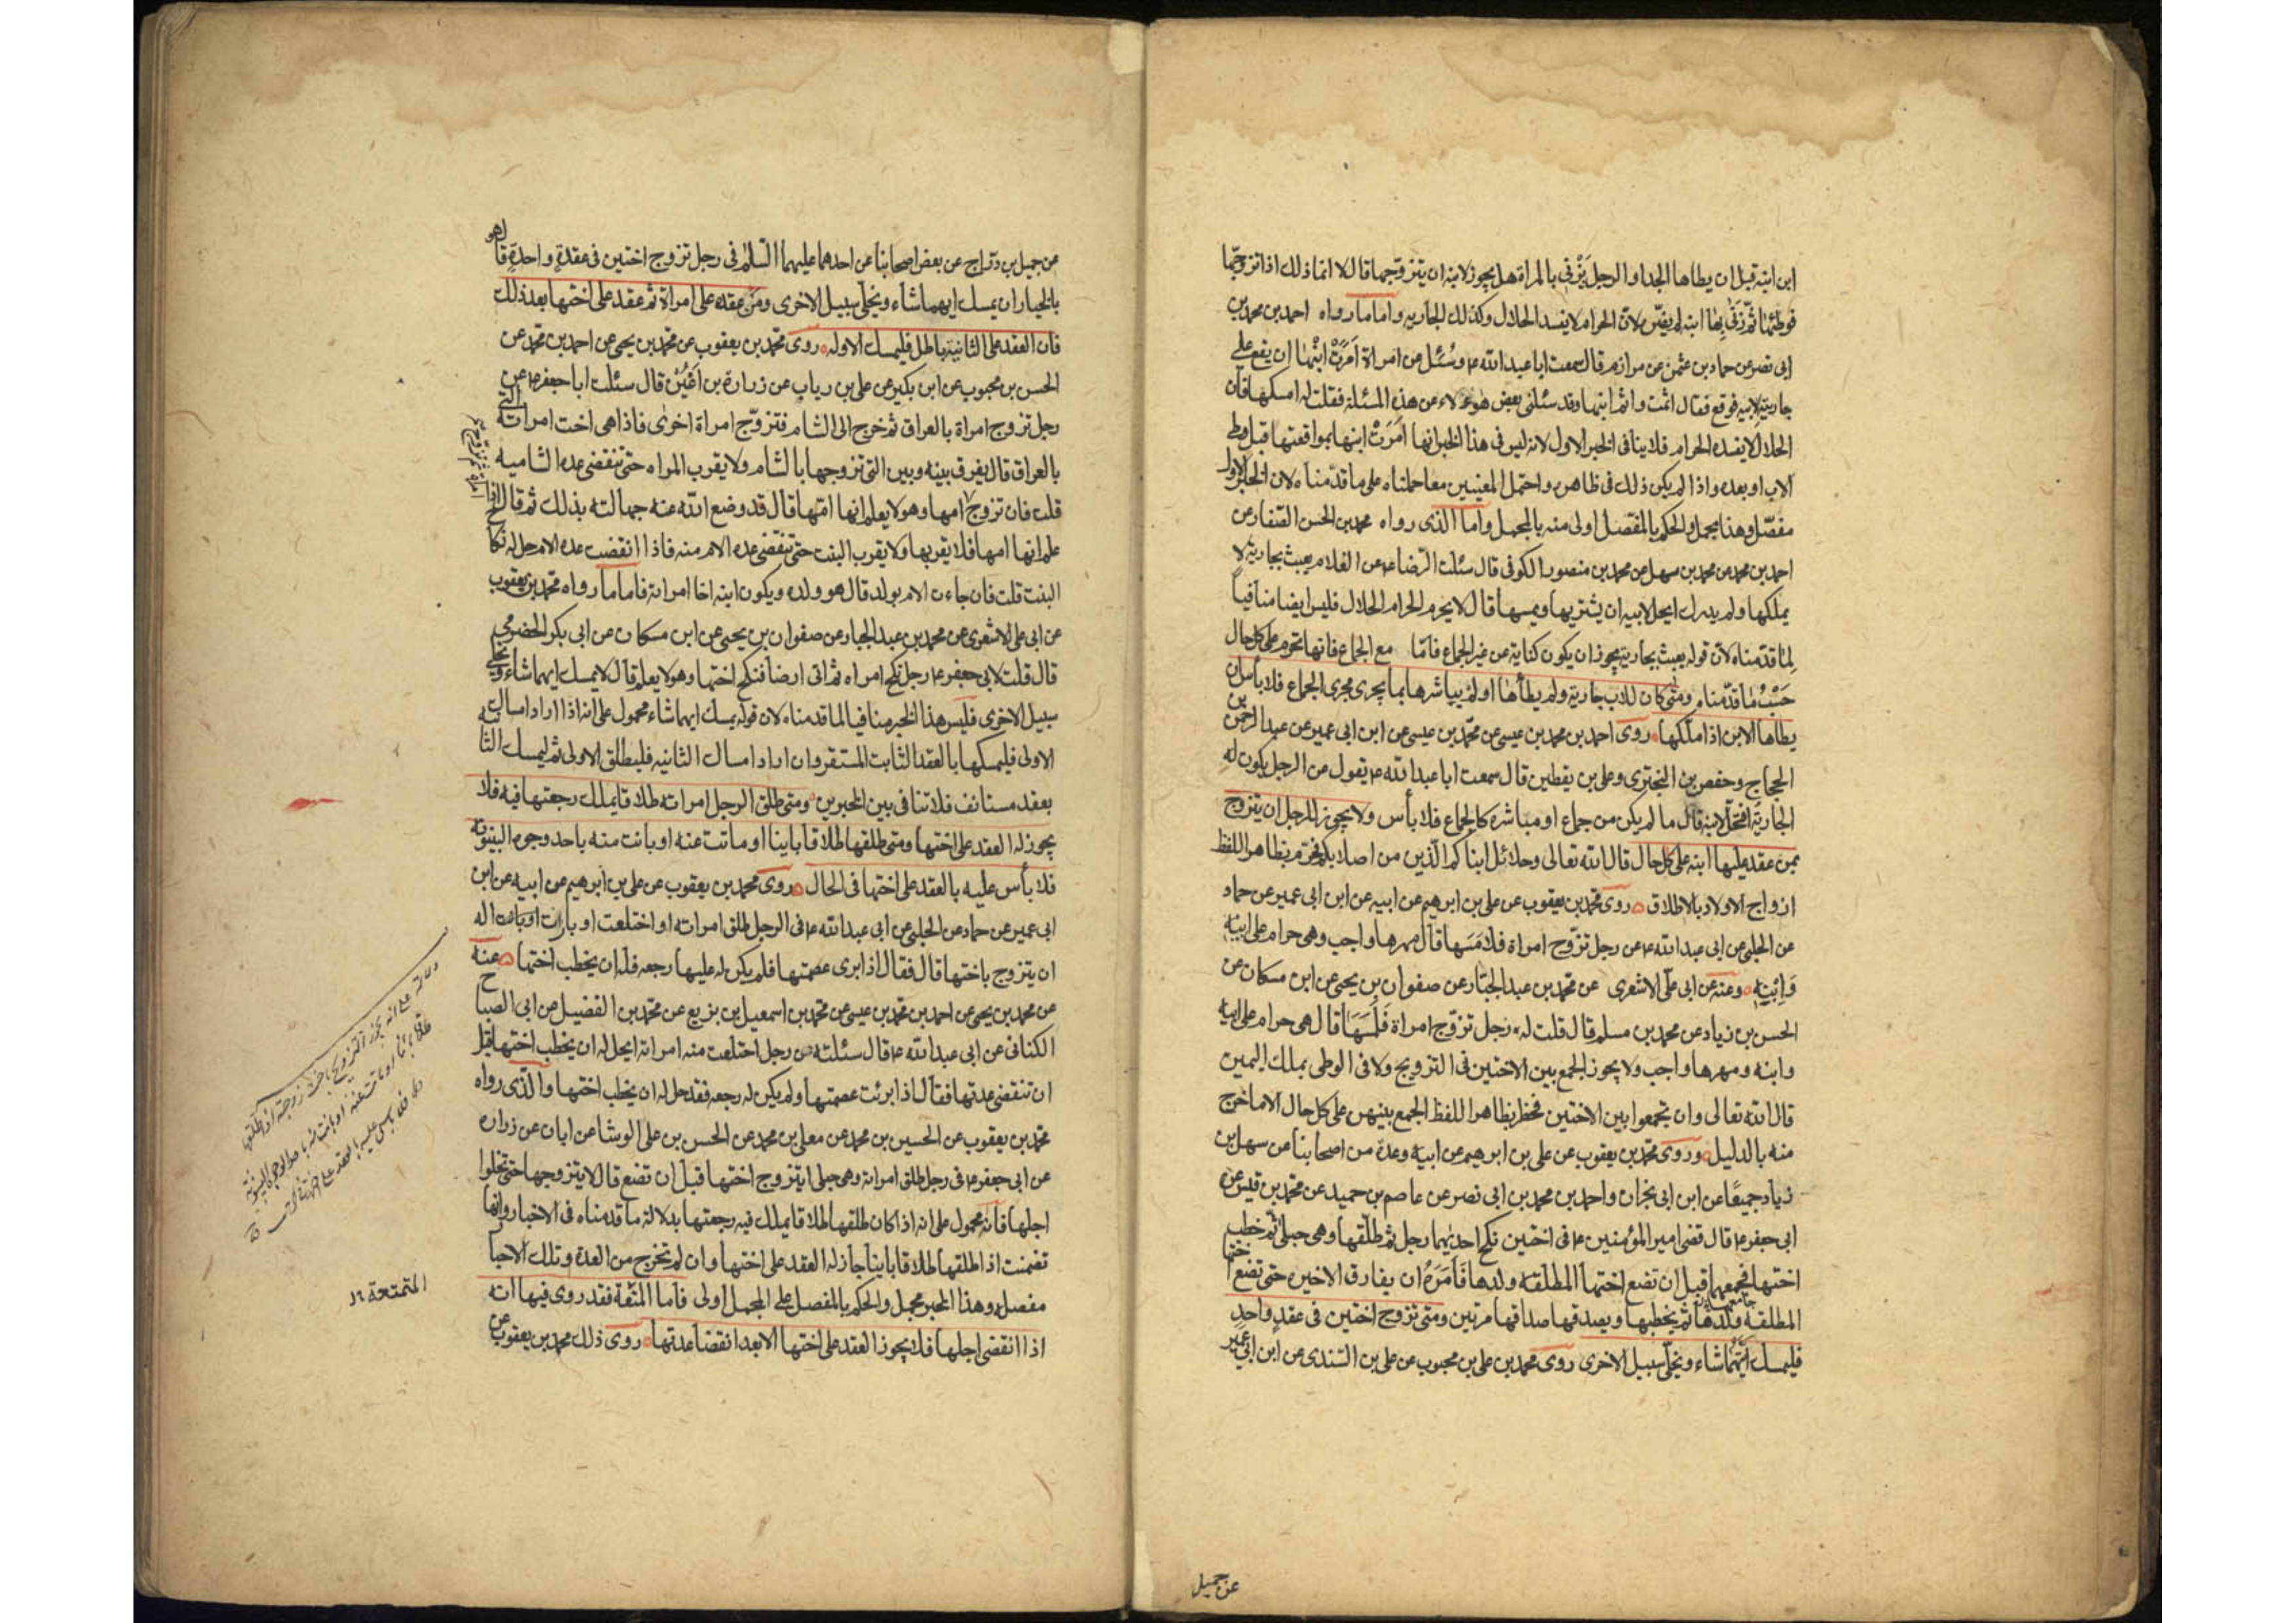 ابن ابنه قبل ان يطاها الجد او الرجل يَزْنى بالمراة هل يجوز لابنه ان يتزوّجها قال لا انما ذلك اذا تزوجّها
فوطئها ثمّ زنى بها ابنه لم يضرّه لانّ الحرام لا يفسد الحلال وكذلك الجاريه واما ما رواه احمد بن محمد بن
ابى نصر عن حماد بن عثمن عن مرازم قال سمعت ابا عبد الله ع وسُئل عن امراة اَمَرَتْ ابْنَها ان يقع على
جارية لابيه فوقع فقال اثمت واثم ابنها وقد سئلنى بعض هؤلاء عن هذه المسئلة فقلت له امسكها فان
الحلال لا يفسده الحرام فلا ينافى الخبر الاول لانه ليس فى هذا الخبر انها اَمَرَتْ ابنها بمواقعتها قبل وطى
الاب او بعده واذا لم يكن ذلك فى ظاهره واحتمل المعنيين معا حملناه على ما قدّمناه لان الخبر الاول
مفصّل وهذا مجمل والحكم بالمفصّل اولى منه بالمجمل واما الذى رواه محمد بن الحسن الصفار عن
احمد بن محمد عن محمد بن سهل عن محمد بن منصور الكوفى قال سئلت الرّضا ع عن الغلام يعبث بجارية لا
يملكها ولم يدرك ايحل لابيه ان يشتريها ويمسها قال لا يحرم الحرام الحلال فليس ايضا منافياً
لِمَا قدّمناه لانّ قوله يعبث بجارية يجوز ان يكون كناية عن غير الجماع فامّا مع الجماع فانها تحرم على كل حال
حَسْبُ ما قدّمناه ومتى كان للاب جارية ولم يطأها او لم يباشرها بما يجرى مجرى الجماع فلا بأس ان
يطاها الابن اذا ملكها روى احمد بن محمد بن عيسى عن محمّد بن عيسى عن ابن ابى عمير عن عبد الرحمن بن
الحجاج وحفص بن البخترى وعلى بن يقطين قال سمعت ابا عبد الله ع يقول عن الرجل يكون له
الجارية افتحل لابنه قال ما لم يكن من جماع او مباشرة كالجماع فلا بأس ولا يجوز للرجل ان يتزوج
بمن عقد عليها ابنه على كل حال قال الله تعالى وحلائل ابنائكم الّذين من اصلابكم فحرّم بظاهر اللفظ
ازواج الاولاد بالاطلاق روى محمّد بن يعقوب عن على بن ابرهيم عن ابيه عن ابن ابى عمير عن حماد
عن الحلبى عن ابى عبد الله ع عن رجل تزّوج امراة فلامَسَها قال مهرها واجب وهى حرام على ابيه
وَابْنِه وعنه عن ابى على الاشعرى عن محمد بن عبد الجبّار عن صفوان بن يحيى عن ابن مسكان عن
الحسن بن زياد عن محمد بن مسلم قال قلت له رجل تزوّج امراة فَلَمَسَهَا قال هى حرام على ابيه
وابنه ومهرها واجب ولا يجوز الجمع بين الاختين فى التزويج ولا فى الوطى بملك اليمين
قال الله تعالى وان تجمعوا بين الاختين فحظر بظاهر اللفظ الجمع بينهن على كل حال الا ما خرج
منه بالدليل وروى محمّد بن يعقوب عن على بن ابرهيم عن ابيه وعدة من اصحابنا عن سهل بن
زياد جميعًا عن ابن ابى نجران واحمد بن محمد بن ابى نصر عن عاصم بن حميد عن محمّد بن قيس عن
ابى جعفر ع قال قضى امير المؤمنين ع فى اختين نكح احديهما رجل ثم طلّقها وهى حبلى ثم خطب
اختها فجمعهما قبل ان تضع اختها المطلقه ولدها فَاَمَرَهُ ان يفارق الاخيره حتى تضع اختها
المطلقه ولدها ثم يخطبها ويصدقها صداقها مرتين ومتى تزوج اختين فى عقد واحدٍ
فليمسك ايّتهما شاء ويخلّ سبيل الاخرى روى محمد بن على بن محبوب عن على بن السّندى عن ابن ابى عمير
عن جميل
عن جميل بن درّاج عن بعض اصحابنا عن احدهما عليهما السّلم فى رجل تزوج اختين فى عقدةٍ واحدةٍ قال هو
بالخيار ان يمسك ايهما شاء ويخلّى سبيل الاخرى ومَن عقد على امراة ثم عقد على اختها بعد ذلك
فان العقد على الثانية باطل فليمسك الاوله روى محمّد بن يعقوب عن محمّد بن يحيى عن احمد بن محمّد عن
الحسن بن محبوب عن ابن بكير عن على بن رياب عن زرارة بن اَعْيُنْ قال سئلت ابا جعفر ع عن
رجل تزوج امراة بالعراق ثم خرج الى الشام فتزوّج امراة اخرى فاذا هى اخت امراته التى
بالعراق قال يفرق بينه وبين التى تزوجها بالشام ولا يقرب المراه حتى تنقضى عده الشاميه
قلت فان تزوج امها وهو لا يعلم انها امّها قال قد وضع الله عنه جهالته بذلك ثم قال اذا
علم انها امها فلا يقربها ولا يقرب البنت حتى تنقضى عده الام منه فاذا انقضت عده الام حل له نكاح
البنت قلت فان جاءت الام بولد قال هو ولده ويكون ابنه اخا امراته فاما ما رواه محمّد بن يعقوب
عن ابى على الاشعرى عن محمد بن عبد الجبار عن صفوان بن يحيى عن ابن مسكان عن ابى بكر الحضرمى
قال قلت لابى جعفر ع رجل نكح امراه ثم اتى ارضا فنكح اختها وهو لا يعلم قال لا يمسك ايهما شاء ويخلى
سبيل الاخرى فليس هذا الخبر منافيا لما قدمناه لان قوله يمسك ايهما شاء محمول على انه اذا اراد امساك
الاولى فليمسكها بالعقد الثابت المستقر وان اراد امساك الثانيه فليطلق الاولى ثم ليمسك الثانيه
بعقد مستانف فلا تنافى بين الخبرين ومتى طلق الرجل امراته طلاقا يملك رجعتها فيه فلا
يجوز له العقد على اختها ومتى طلقها طلاقا باينا او ماتت عنه او بانت منه باحد وجوه البينونه
فلا بأس عليه بالعقد على اختها فى الحال روى محمد بن يعقوب عن على بن ابرهيم عن ابيه عن ابن
ابى عمير عن حماد عن الحلبى عن ابى عبد الله ع فى الرجل طلق امراته او اختلعت او بارات اله
ان يتزوج باختها قال فقال اذا برى عصمتها فلم يكن له عليها رجعه فله ان يخطب اختها عنه
عن محمد بن يحيى عن احمد بن محمّد بن عيسى عن محمّد بن اسمعيل بن بزيع عن محمّد بن الفضيل عن ابى الصباح
الكنانى عن ابى عبد الله ع قال سئلته عن رجل اختلعت منه امراته ايحل له ان يخطب اختها قبل
ان تنقضى عدتها فقال اذا برئت عصمتها ولم يكن له رجعه فقد حل له ان يخطب اختها والّذى رواه
محمّد بن يعقوب عن الحسين بن محمد عن معلى بن محمد عن الحسن بن على الوشا عن ابان عن زراره
عن ابى جعفر ع فى رجل طلق امراته وهى حبلى ايتزوج اختها قبل ان تضع قال لا يتزوجها حتى يخلوا
اجلها فانّه محمول على انه اذا كان طلقها طلاقا يملك فيه رجعتها بدلالة ما قدمناه فى الاخبار وانها
تضمنت اذا طلقها طلاقا باينا جاز له العقد على اختها وان لم تخرج من العدة وتلك الاخبار
مفصله وهذا الخبر مجمل والحكم بالمفصل على المجمل اولى فاما المتعة فقد روى فيها انه
اذا انقضى اجلها فلا يجوز العقد على اختها الا بعد انقضا عدتها روى ذلك محمد بن يعقوب عن
المتمتعة